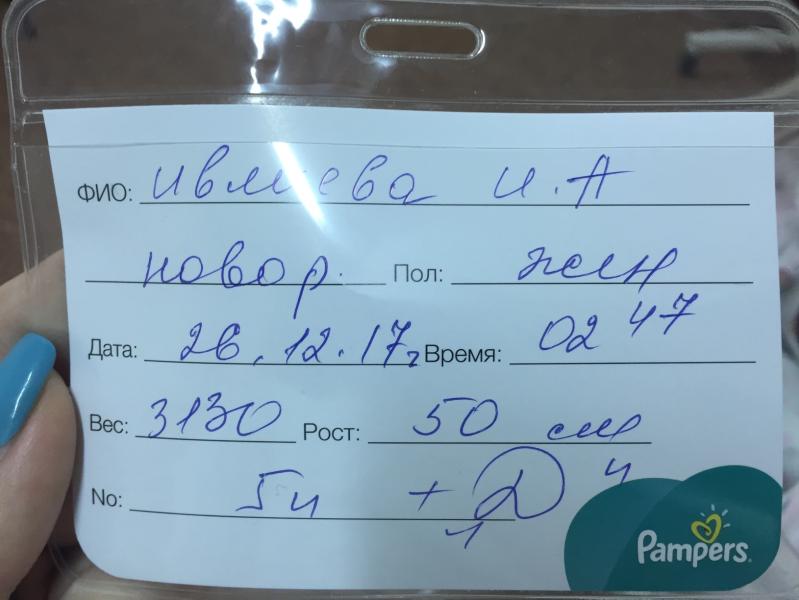 ФИО: Ивлиева И.А
новор. Пол: жен
Дата: 26.12.17г Время: 02 47
Вес: 3130 Рост: 50 см
No: 5ч + Д
Pampers